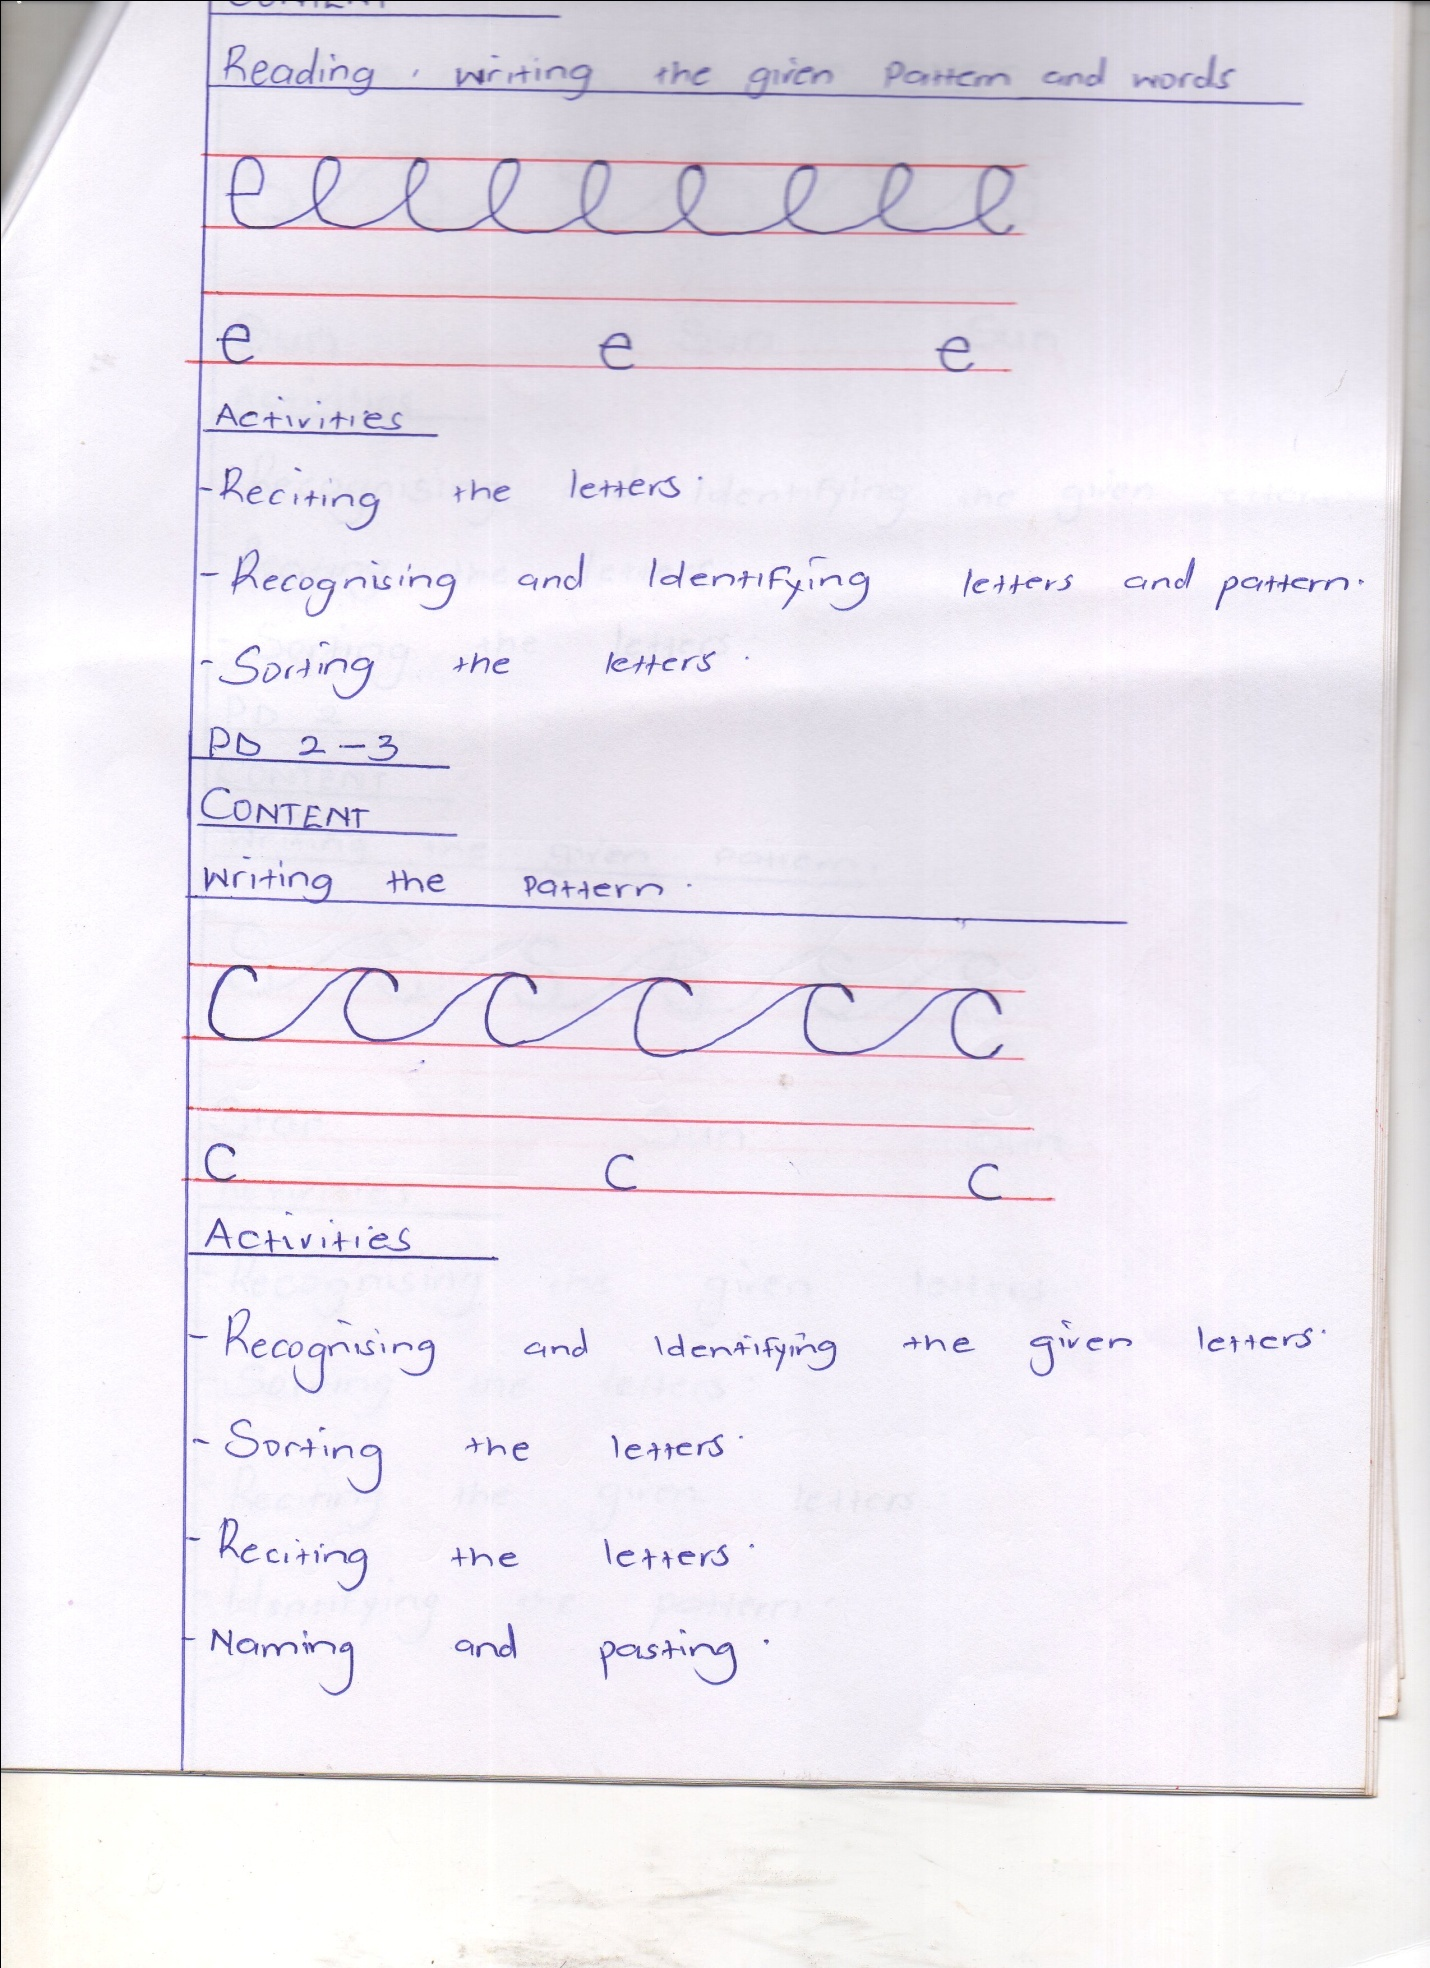 CONTENT
Reading, writing the given pattern and words
e e e e e e e e e
e e e
Activities
-Reciting the letters.
-Recognising and Identifying letters and pattern.
-Sorting the letters.
PD 2-3
CONTENT
Writing the pattern.
c c c c c c
c c c
Activities
-Recognising and Identifying the given letters.
-Sorting the letters.
-Reciting the letters.
-Naming and pasting.